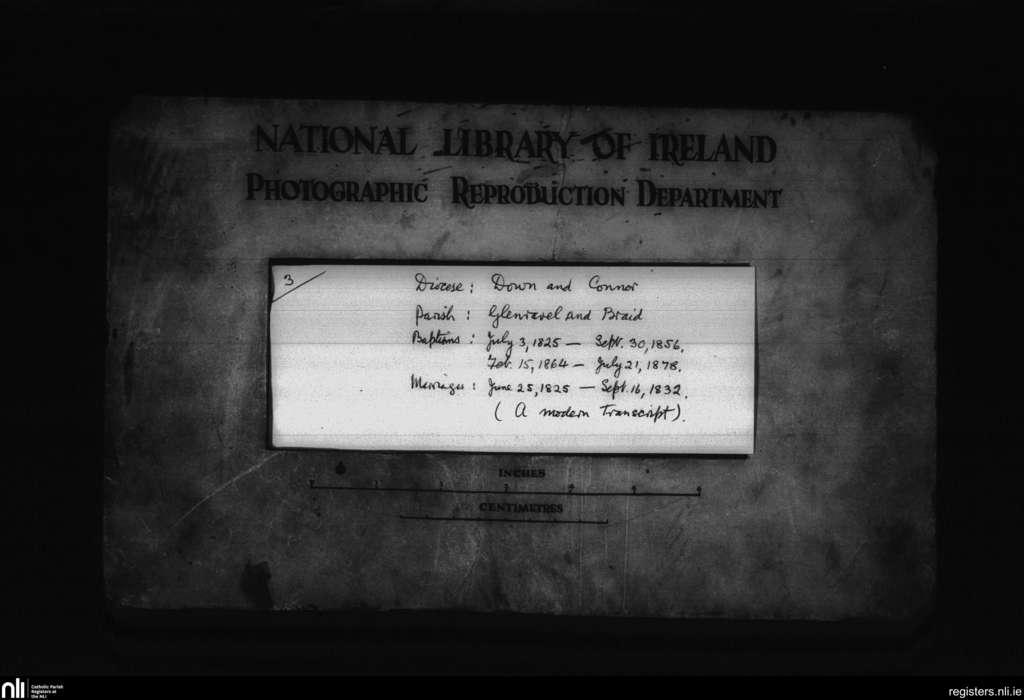 NATIONAL LIBRARY OF IRELAND
PHOTOGRAPHIC REPRODUCTION DEPARTMENT
3
Diocese: Down and Connor
Parish: Glenravel and Braid
Baptisms: July 3, 1825 — Sept. 30, 1856.
Feb. 15, 1864 — July 21, 1878.
Marriages: June 25, 1825 — Sept. 16, 1832.
(A modern Transcript).
INCHES
CENTIMETRES
nli
Catholic Parish
Registers at
the NLI
registers.nli.ie